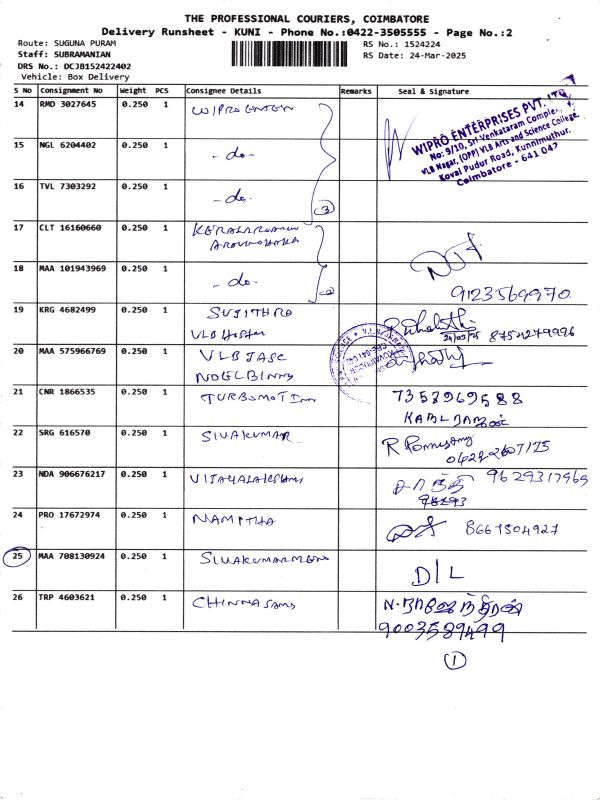 THE PROFESSIONAL COURIERS, COIMBATORE
Delivery Runsheet - KUNI - Phone No.:0422-3505555 - Page No.:2
Route: SUGUNA PURAM
Staff: SUBRAMANIAN
DRS No.: DCJB152422402
Vehicle: Box Delivery
RS No.: 1524224
RS Date: 24-Mar-2025
S No Consignment No Weight PCS Consignee Details Remarks Seal & Signature
14 RMD 3027645 0.250 1 WIPRO ENTER
WIPRO ENTERPRISES PVT. LTD
No: 9/10, Sri Venkataram Complex,
VLB Nagar, (OPP) VLB Arts and Science College,
Kovai Pudur Road, Kunnimuthur,
Coimbatore - 641 042
15 NGL 6204402 0.250 1 - do -
16 TVL 7303292 0.250 1 - do -
(3)
17 CLT 16160660 0.250 1
18 MAA 101943969 0.250 1 - do -
(2)
9123569970
19 KRG 4682499 0.250 1 SUJITHRA
VLB Hostel
24/03/25 8754279996
20 MAA 575966769 0.250 1 VLB JASC
NOEL BINNY
21 CNR 1866535 0.250 1 TURBOMOT
7358969588
22 SRG 616570 0.250 1 SIVAKUMAR
R Ponnusamy
04222607175
23 NDA 906676217 0.250 1 VIJAYALAKSHMI
9629317969
24 PRO 17672974 0.250 1 NAMITHA
8667504927
25 MAA 708130924 0.250 1
D/L
26 TRP 4603621 0.250 1 CHINNASAMY
9003589499
1